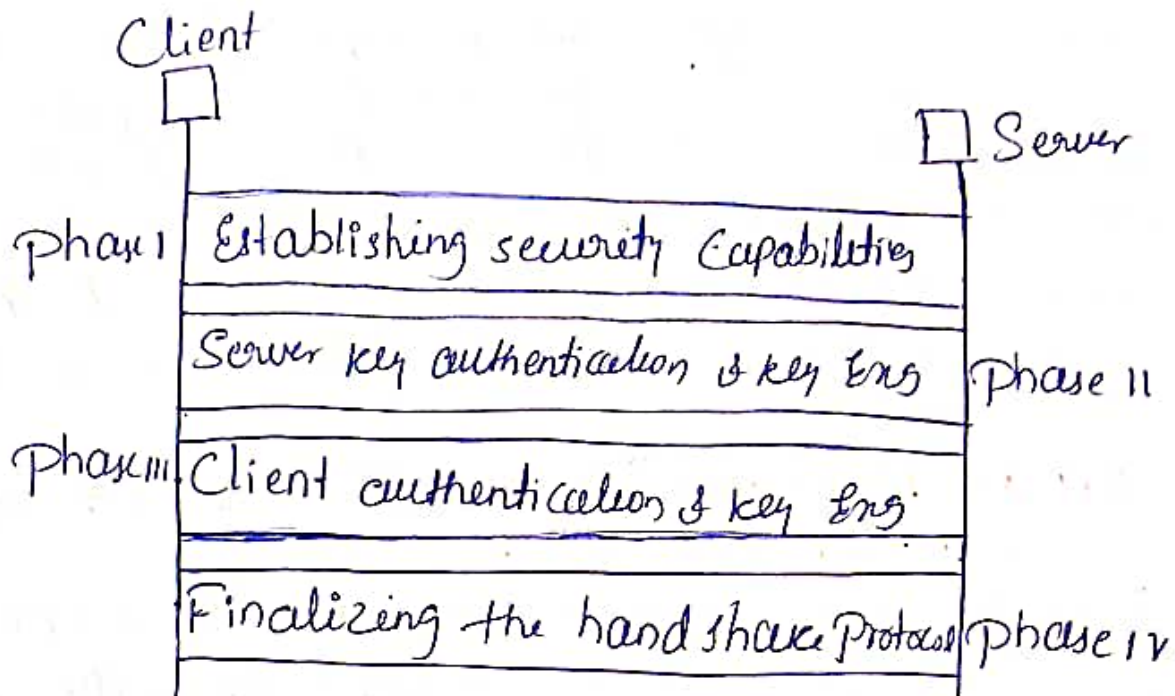 Client
Server
Phase I Establishing security Capabilities
Server key authentication & key Exg Phase II
Phase III Client authentication & key Exg
Finalizing the hand shake Protocol Phase IV